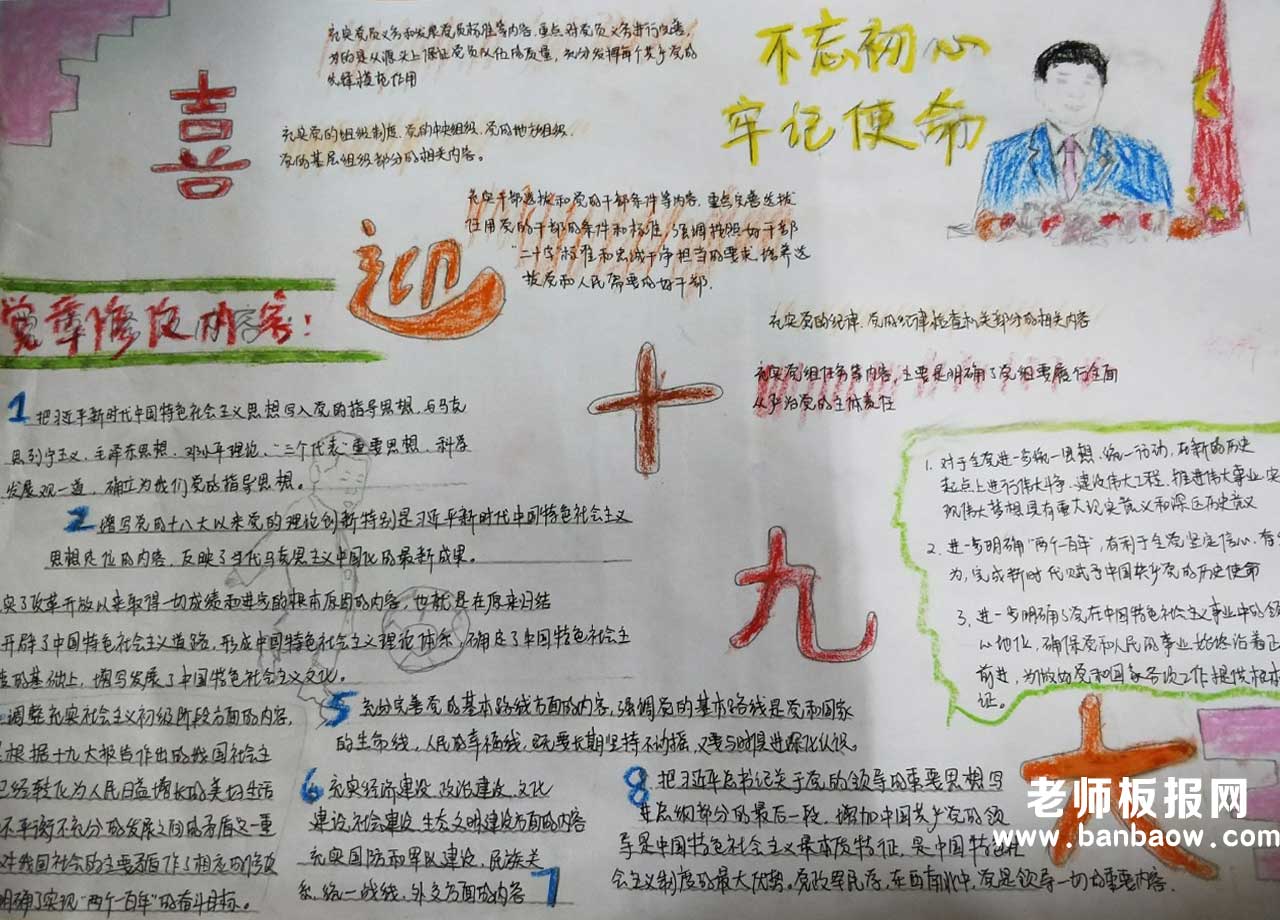 充实党员义务和发展党员标准等内容,重点对党员义务进行完善,
为的是从源头上保证党员队伍高质量,充分发挥每个共产党员
先锋模范作用
不忘初心
牢记使命
喜
充实党的组织制度、党的中央组织、党的地方组织、
党的基层组织部分的相关内容。
充实干部选拔和党的干部条件等内容,重点完善选拔
任用党的干部的条件和标准,强调按照好干部
"二十字"标准和忠诚干净担当的要求,培养选
拔党和人民需要的好干部.
迎
党章修改内容!
充实党的纪律、党的纪律检查机关部分的相关内容
充实党组任务等内容,主要是明确了党组要履行全面
从严治党的主体责任
十
九
大
1 把习近平新时代中国特色社会主义思想写入党的指导思想,与马克
思列宁主义、毛泽东思想、邓小平理论、"三个代表"重要思想、科学
发展观一道,确立为我们党的指导思想。
2 填写党的十八大以来党的理论创新特别是习近平新时代中国特色社会主义
思想定位的内容,反映了当代马克思主义中国化的最新成果。
实了改革开放以来取得一切成绩和进步的根本原因的内容,也就是在原来归结
开辟了中国特色社会主义道路,形成中国特色社会主义理论体系,确定了中国特色社会主
度的基础上,填写发展了中国特色社会主义文化。
调整充实社会主义初级阶段方面的内容,
根据十九大报告作出的我国社会主
已经转化为人民日益增长的美好生活
不平衡不充分的发展之间的矛盾这一重
对我国社会的主要矛盾作了相应的修改
明确了实现"两个一百年"的奋斗目标。
5 充分完善党的基本路线方面的内容,强调党的基本路线是党和国家
的生命线,人民的幸福线,既要长期坚持不动摇,又要与时俱进深化认识。
6 充实经济建设、政治建设、文化
建设、社会建设、生态文明建设方面的内容
充实国防和军队建设、民族关
系、统一战线、外交方面的内容 7
8 把习近平总书记关于党的领导的重要思想写
进总纲部分的最后一段,增加中国共产党的领
导是中国特色社会主义最本质特征,是中国特色社
会主义制度的最大优势。党政军民学,东西南北中,党是领导一切的重要内容.
1. 对于全党进一步统一思想、统一行动,在新的历史
起点上进行伟大斗争、建设伟大工程、推进伟大事业、实
现伟大梦想具有重大现实意义和深远历史意义
2. 进一步明确"两个一百年",有利于全党坚定信心、奋
为,完成新时代赋予中国共产党的历史使命
3. 进一步明确了党在中国特色社会主义事业中的领
心地位,确保党和人民的事业始终沿着正
前进,为做好党和国家各项工作提供根本
证。
老师板报网
www.banbaow.com